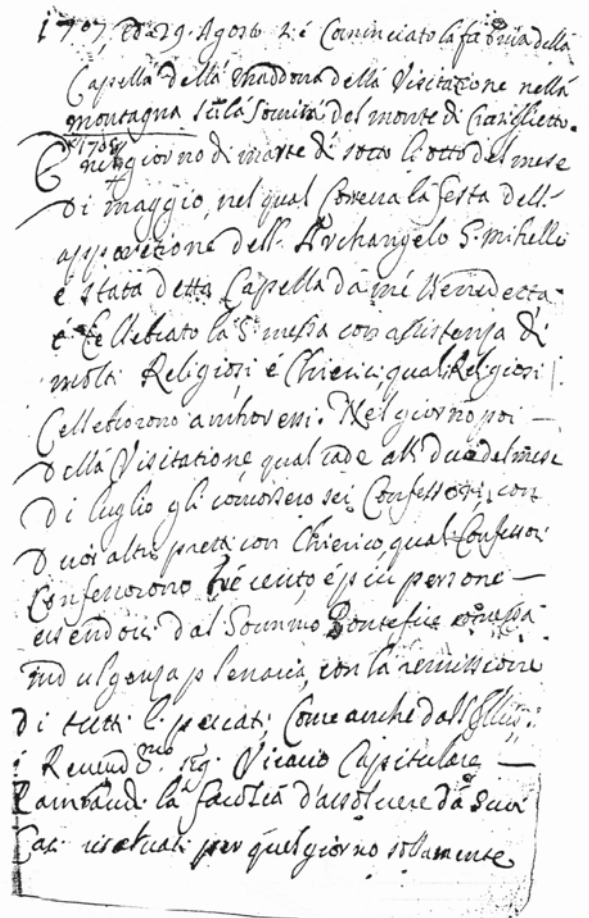 1707 ed a 29. Agosto s'é Cominciato la fabrica della
Capella della Maddona della Visitatione nella
montagna su la Somità del monte di
1708
E nel giorno di marte di sotto li otto del mese
di maggio, nel qual Correva la festa dell'
apparetione dell' Archangelo S. Michelle
è stata detta Capella da mé Benedetta
é Cellebrato la S. messa con assistenza di
molti Religiosi é Chierici, quali Religiosi
Cellebrorono anch'essi. Nel giorno poi
della Visitatione qual cade alli due del mese
di luglio gli concorsero sei Confessori, con
duoi altri pretti con Chierico, quali Confessori
Confessorono tré cento é più persone
essendovi dal Sommo Pontefice concessa
indulgenza plenaria, con la remissione
di tutti li peccati, Come anche dall' Illus.
é Reverend.mo sig. Vicario Capitulare
la facoltà d'assolvere da suoi
Casi riservati per quel giorno sollamente